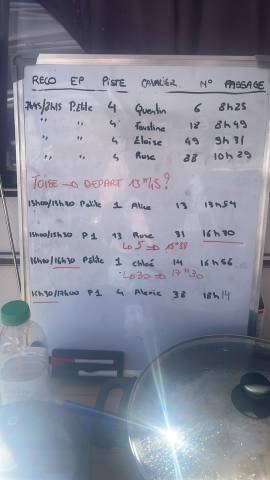 RECO EP PISTE CAVALIER N° PASSAGE
7h45/8h15 Petite 4 Quentin 6 8h25
" " 4 Faustine 18 8h49
" " 4 Eloise 49 9h31
" " 4 Rose 38 10h29
TOISE → DEPART 13"45?
13h00/13h30 Petite 1 Alice 13 13h54
15h00/15h30 P1 13 Rose 31 16h30
↳ 5 → 15"38
16h00/16h30 Petite 1 Chloé 14 16h56
↳ 30 → 17"30
16h30/17h00 P1 4 Alexie 38 18h14